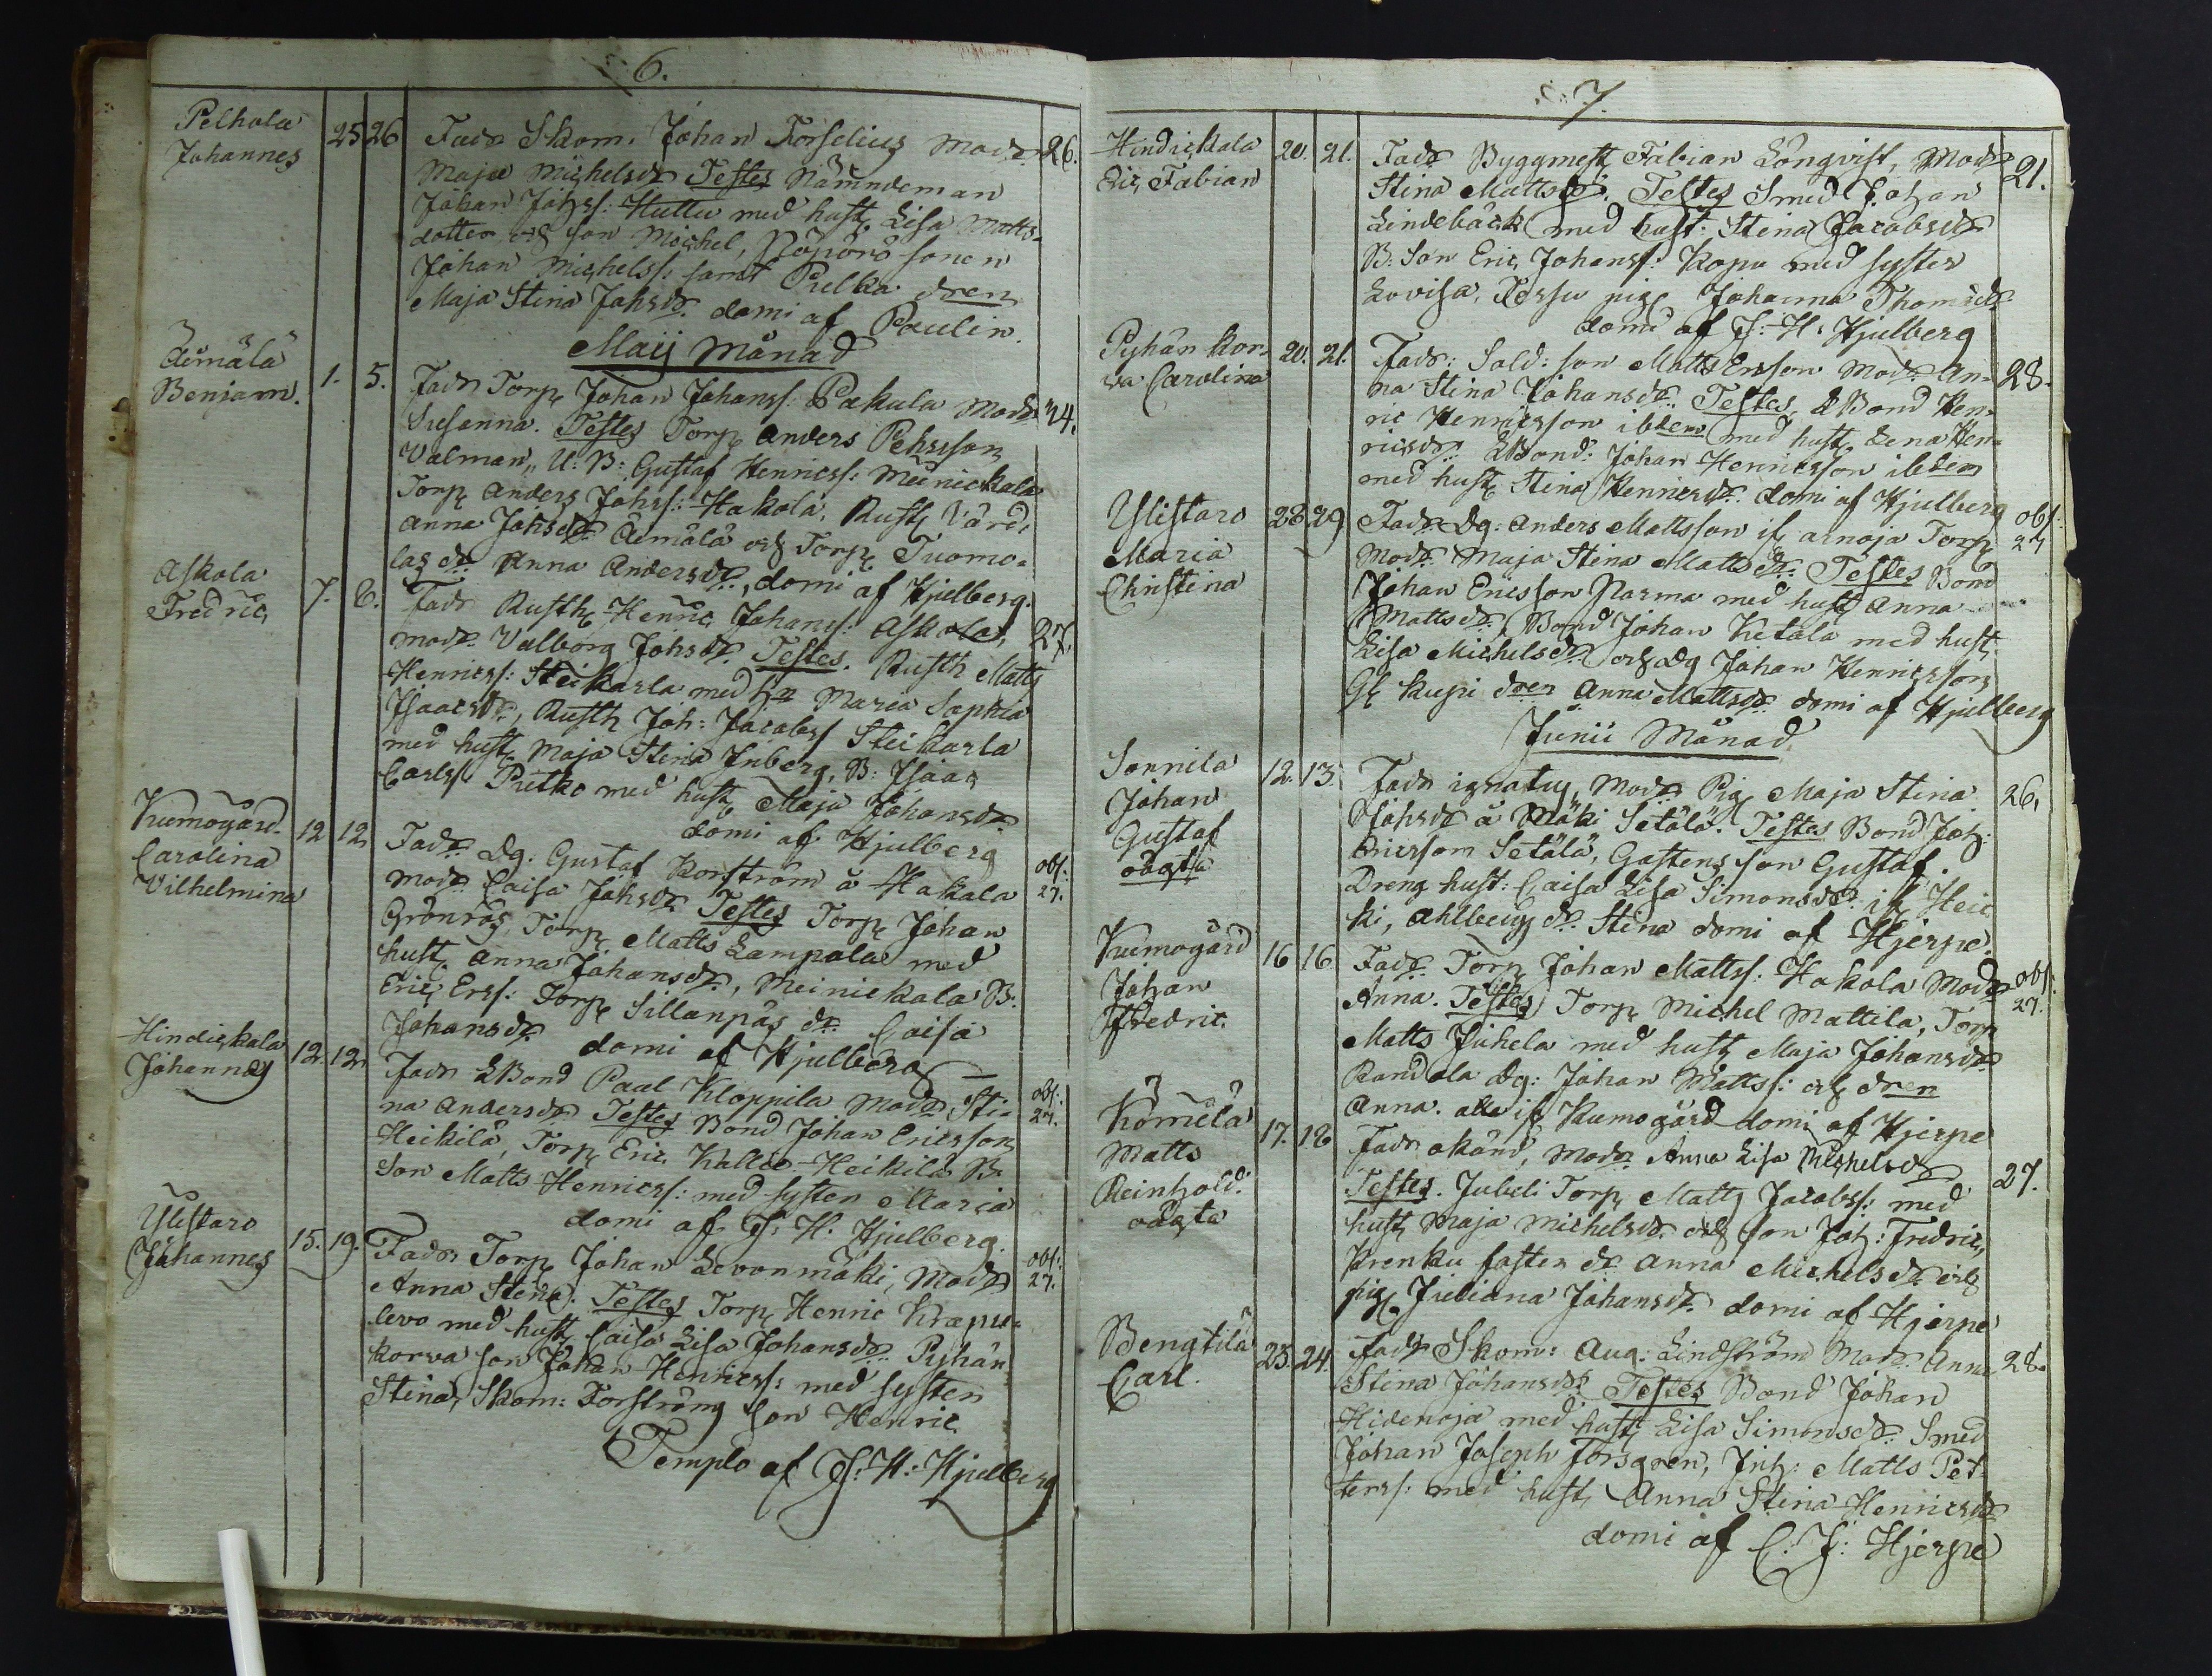 6.
Pelhola
Johannes
25 26
Fadr Skom. Johan Forselius Modr 26.
Maja Michelsdr Testes Nämndeman
Johan Johss: Huttu med hust. Lisa Matts-
dotter och son Michel, sonen
Johan Michelss: samt Pulka dren
Maja Stina Johsdr. domi af Paulin.
Maij Månad
Äimälä
Benjam.
1. 5.
Fadr Torp. Johan Johanss: Pakula Modr 24.
Susanna. Testes Torp. Anders Pehrsson
Valman, U: B: Gustaf Henricss: Meinickala
Torp. Anders Johss: Hakola, Rusth. Värd
Anna Johsdr Äimälä och Torp. Tuomo-
las dr. Anna Andersdr, domi af Hjulberg.
Askola
Fredric
7. 8.
Fadr Rusth. Henric Johanss: Askola, 27.
modr. Valborg Johsdr. Testes. Rusth Matts
Henricss: Steikarla med hu Maria Sophia
Isaacsdr, Rusth Joh: Jacobss Steikarla
med hust. Maja Stina Inberg, B: Isaac
Carlss Pietko med hust. Maja Johansdr.
domi af Hjulberg
Kumogård
Carolina
Vilhelmina
12 12
Fadr Dg: Gustaf Korström å Hakala obs: 27.
modr Caisa Johsdr Testes Torp Johan
Grönros, Torp. Matts Lampala med
hust. Anna Johansdr, Meinickala B:
Eric Erss: Torp Sillanpäs dr. Caisa
Johansdr domi af Hjulberg
Hindickala
Johannes
12. 12.
Fadr LBond Paal Kloppila Modr, Sti- obs: 27.
na Andersdr Testes Bond Johan Ericsson
Heikilä, Torp. Eric Kallio-Heikilä B.
Son Matts Henricss: med syster Maria
domi af J. H. Hjulberg.
Ylistaro
Johannes
15. 19.
Fadr. Torp. Johan Levonmäki, Modr obs: 27.
Anna Stina. Testes Torp. Henric Krapu-
levo med hust. Caisa Lisa Johansdr. Pyhän
korva son Johan Henricss: med syster
Stina, Skom: Forström son Henric
Templo af J: H: Hjulberg
7.
Hindickala
Eric Fabian
20. 21.
Fadr Byggmest Fabian Lönqvist, Modr 21.
Stina Mattsdr. Testes Smed Johan
Lindebäck med hust: Stina Jacobsdr
B: Son Eric Johanss: Kopu med syster
Lovisa, Kossu pig. Johanna Thomsdr
domi af J: H: Hjulberg
Pyhän kor-
va Carolina
20. 21.
Fadr: Sold: son Matts Ersson Modr An- 28.
na Stina Johansdr. Testes LBond Hen-
ric Henricsson ibdem med hust. Lena Hen-
ricsdr. LBond: Johan Henricsson ibidem
med hust. Stina Henricsdr. domi af Hjulberg
Ylistaro
Maria
Christina
28 29
Fadr Dg: Anders Mattsson if. arnoja Torp. obs: 27
Modr. Maja Stena Mattsdr. Testes Bond
Johan Ericsson Parma med hust Anna
Mattsdr, Bond Johan Ketala med hust.
Lisa Michelsdr och Dg Johan Henricsson
Gl Kupi dren Anna Mattsdr. domi af Hjulberg
Junii Månad.
Sonnila
Johan
Gustaf
oägta
12. 13.
Fadr ignotus, Modr Pig Maja Stina 26.
Johsdr å Mäki Setälä. Testes Bond Joh:
Ericsson Setälä, Gästens son Gustaf.
Dreng hust: Caisa Lisa Simonsdr. if. Heic
ki, Ahlberg dr. Stina domi af Hjerpe.
Kumogård
Johan
Fredric.
16 16
Fadr. Torp Johan Mattss: Hakola Modr obs: 27.
Anna. Testes Torp Michel Mattila, Torp
Matts Juhela med hust Maja Johansdr
Randala Dg: Johan Mattss: och dren
Anna. alle if Kumogård domi af Hjerpe
Kömilä
Matts
Reinhold.
oägta
17. 18
Fadr okänd, Modr. Anna Lisa Michelsdr 27.
Testes. Jubeli Torp. Matts Jacobss: med
hust. Maja Michelsdr. och son Joh: Fredric,
Krenku faster dr. Anna Michelsdr. och
pig. Juliana Johansdr. domi af Hjerpe
Bengtilä
Carl.
23. 24.
Fadr Skom: Aug: Lindström Modr. Anna 28.
Stina Johansdr. Testes Bond Johan
Hidenoja med hust. Lisa Simonsdr. Smed
Johan Joseph Forsgren, Inh: Matts Pet-
terss: med hust. Anna Stina Henricsdr
domi af C. J: Hjerpe